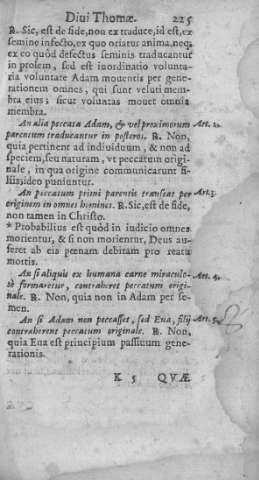 Diui Thomæ. 225
R. Sic, est de fide, non ex traduce, id est, ex
semine infecto, ex quo oriatur anima, neq;
ex eo quòd defectus seminis traducantur
in prolem, sed est inordinatio volunta-
ria voluntate Adam mouentis per gene-
rationem omnes, qui sunt veluti mem-
bra eius; sicut voluntas mouet omnia
membra.
An alia peccata Adam, & vel proximorum Art. 2.
parentum traducantur in posteros. R. Non,
quia pertinent ad indiuiduum, & non ad
speciem, seu naturam, vt peccatum origi-
nale, in qua origine communicarunt fi-
lij; ideo puniuntur.
An peccatum primi parentis transeat per Art. 3.
originem in omnes homines. R. Sic, est de fide,
non tamen in Christo.
* Probabilius est quòd in iudicio omnes
morientur, & si non morientur, Deus au-
feret ab eis pœnam debitam pro reatu
mortis.
An si aliquis ex humana carne miraculo- Art. 4.
sè formaretur, contraheret peccatum origi-
nale. R. Non, quia non in Adam per se-
men.
An si Adam non peccasset, sed Eua, filij Art. 5.
contraherent peccatum originale. R. Non,
quia Eua est principium passiuum gene-
rationis.
K 5 QVÆ